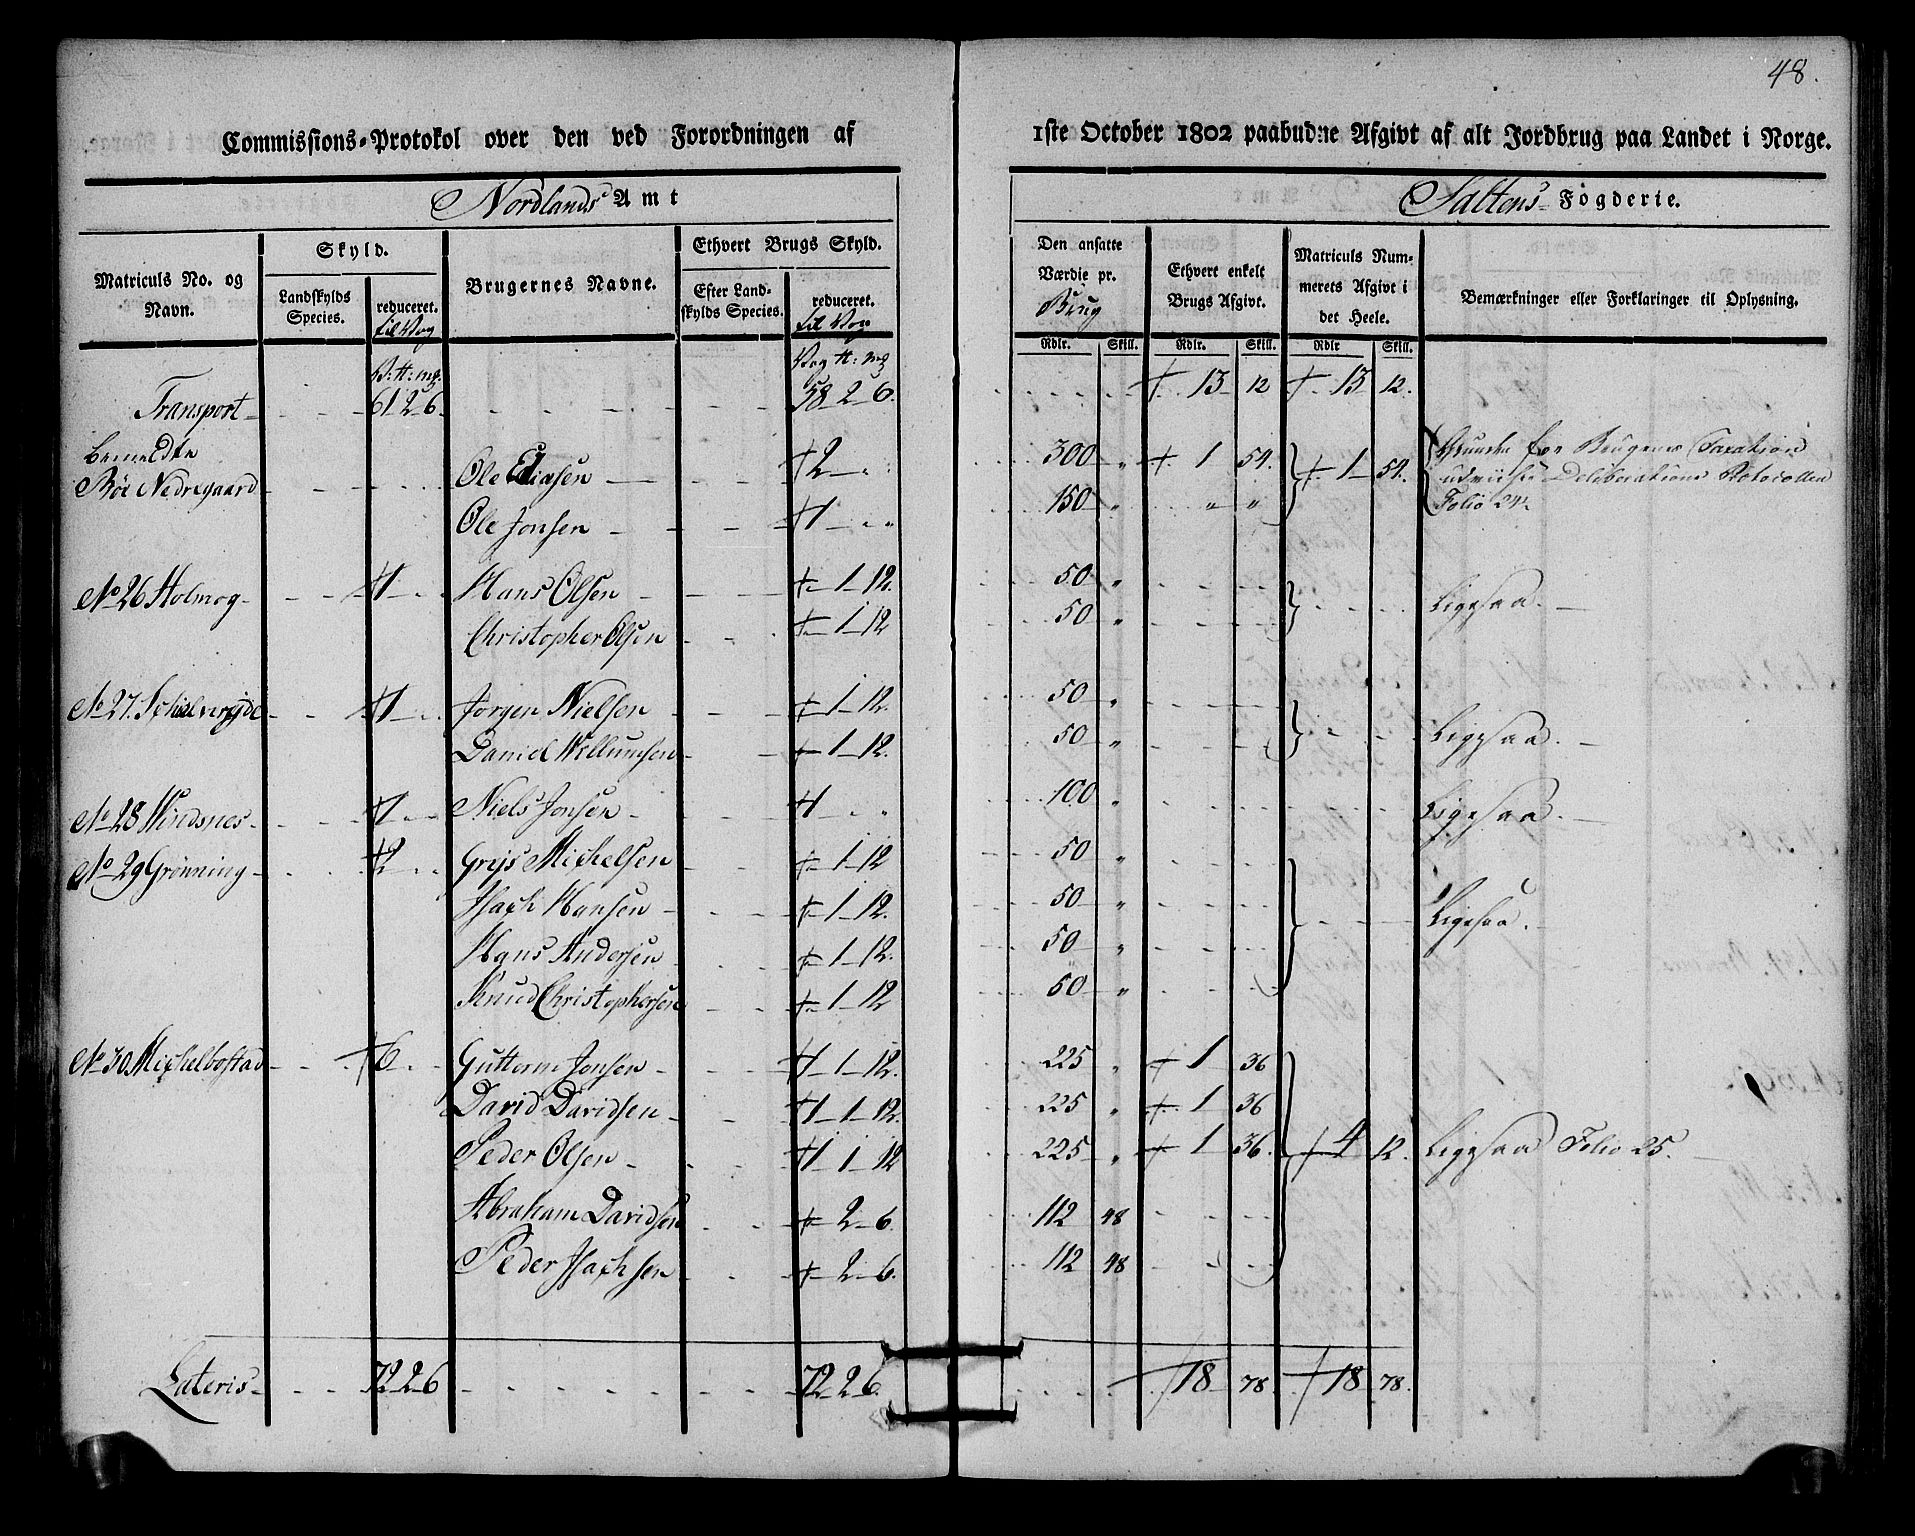 48.
Commissions-Protokol over den ved Forordningen af 1ste October 1802 paabudne Afgivt af alt Jordbrug paa Landet i Norge.
Nordlands Amt Saltens Fögderie.
Matriculs No. og Navn. Skyld. Landskylds Species. reduceret. til Vog Brugernes Navne. Ethvert Brugs Skyld. Efter Landskylds Species. reduceret. til Vog Den ansatte Værdie pr. Brug Rdlr. Skill. Ethvert enkelt Brugs Afgivt. Rdlr. Skill. Matriculs Nummerets Afgivt i det Heele. Rdlr Skill. Bemærkninger eller Forklaringer til Oplysning.
V: tt: mg. Vog tt: mg
Transport 61 2 6 58 2 6. 13 12 13 12.
bemeldte
Böe Nedregaard Ole Eliasen 2 300 " 1 54. 1 54. Grunden for Brugenes Taxation
udviiser Deliberations Protocollen
Folio 24.
Ole Jonsen 1 150 " " "
No 26 Holmog 1 Hans Olsen 1 12. 50 " Ligesaa.
Christopher Olsen 1 12 50 "
No 27. 1 Jörgen Nielsen 1 12. 50 " Ligesaa.
Daniel Willumsen 1 12. 50 "
No 28 Windsnes 1 Niels Jonsen 1 100 " Ligesaa.
No 29 Grönning 2 Grejs Michelsen 1 12 50 " Ligesaa.
Isach Hansen 1 12. 50 "
Hans Andersen 1 12. 50 "
Knud Christophersen 1 12 50 "
No 30 Michelbostad 6 Guttorm Jonsen 1 1 12. 225 " 1 36
David Davidsen 1 1 12. 225 " 1 36
Peder Olsen 1 1 12 225 " 1 36. 4 12. Ligesaa Folio 25.
Abraham Davidsen 2 6. 112 48
Peder Isachsen 2 6. 112 48
Lateris 72 2 6 72 2 6. 18 78. 18 78.